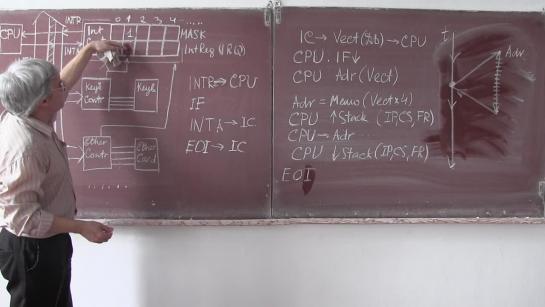 INTR
0 1 2 3 4 .....
CPU
Int
1
MASK
INT
IntReg (IRQ)
Keyb
Contr
Keyb
Ether
Contr
Ether
Card
......
INTR → CPU
IF
INTA → IC
EOI → IC
IC → Vect(%b) → CPU
CPU. IF↓
CPU Adr (Vect)
Adr = Memo (Vect×4)
CPU ↑Stack (IP,CS,FR)
CPU → Adr
CPU ↓Stack(IP,CS,FR)
EOI
I
Adr